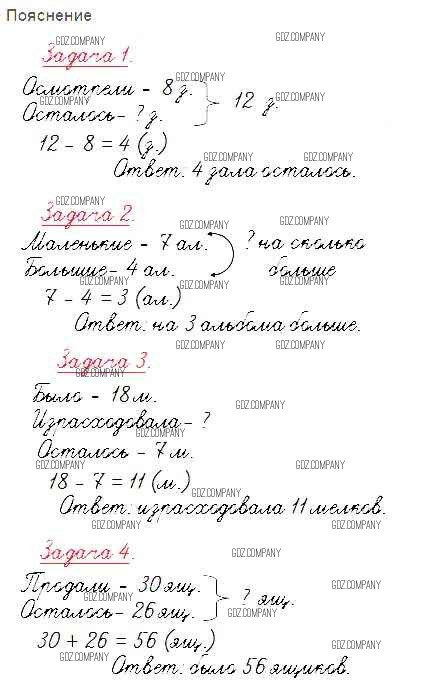 Пояснение
GDZ.COMPANY
GDZ.COMPANY
Задача 1.
GDZ.COMPANY
Осмотрели - 8 з.
GDZ.COMPANY
GDZ.COMPANY
12 з.
Осталось - ? з.
12 - 8 = 4 (з.)
GDZ.COMPANY
GDZ.COMPANY
Ответ: 4 зала осталось.
GDZ.COMPANY
Задача 2.
GDZ.COMPANY
GDZ.COMPANY
Маленькие - 7 ал.
? на сколько
Большие - 4 ал.
больше
GDZ.COMPANY
GDZ.COMPANY
GDZ.COMPANY
7 - 4 = 3 (ал.)
Ответ: на 3 альбома больше.
GDZ.COMPANY
GDZ.COMPANY
Задача 3
GDZ.COMPANY
Было - 18 м.
GDZ.COMPANY
Израсходовала - ?
GDZ.COMPANY
Осталось - 7 м.
GDZ.COMPANY
GDZ.COMPANY
18 - 7 = 11 (м.)
GDZ.COMPANY
Ответ: израсходовала 11 мелков.
GDZ.COMPANY
GDZ.COMPANY
Задача 4.
GDZ.COMPANY
Продали - 30 ящ.
GDZ.COMPANY
GDZ.COMPANY
? ящ.
Осталось - 26 ящ.
GDZ.COMPANY
30 + 26 = 56 (ящ.)
GDZ.COMPANY
GDZ.COMPANY
Ответ: было 56 ящиков.